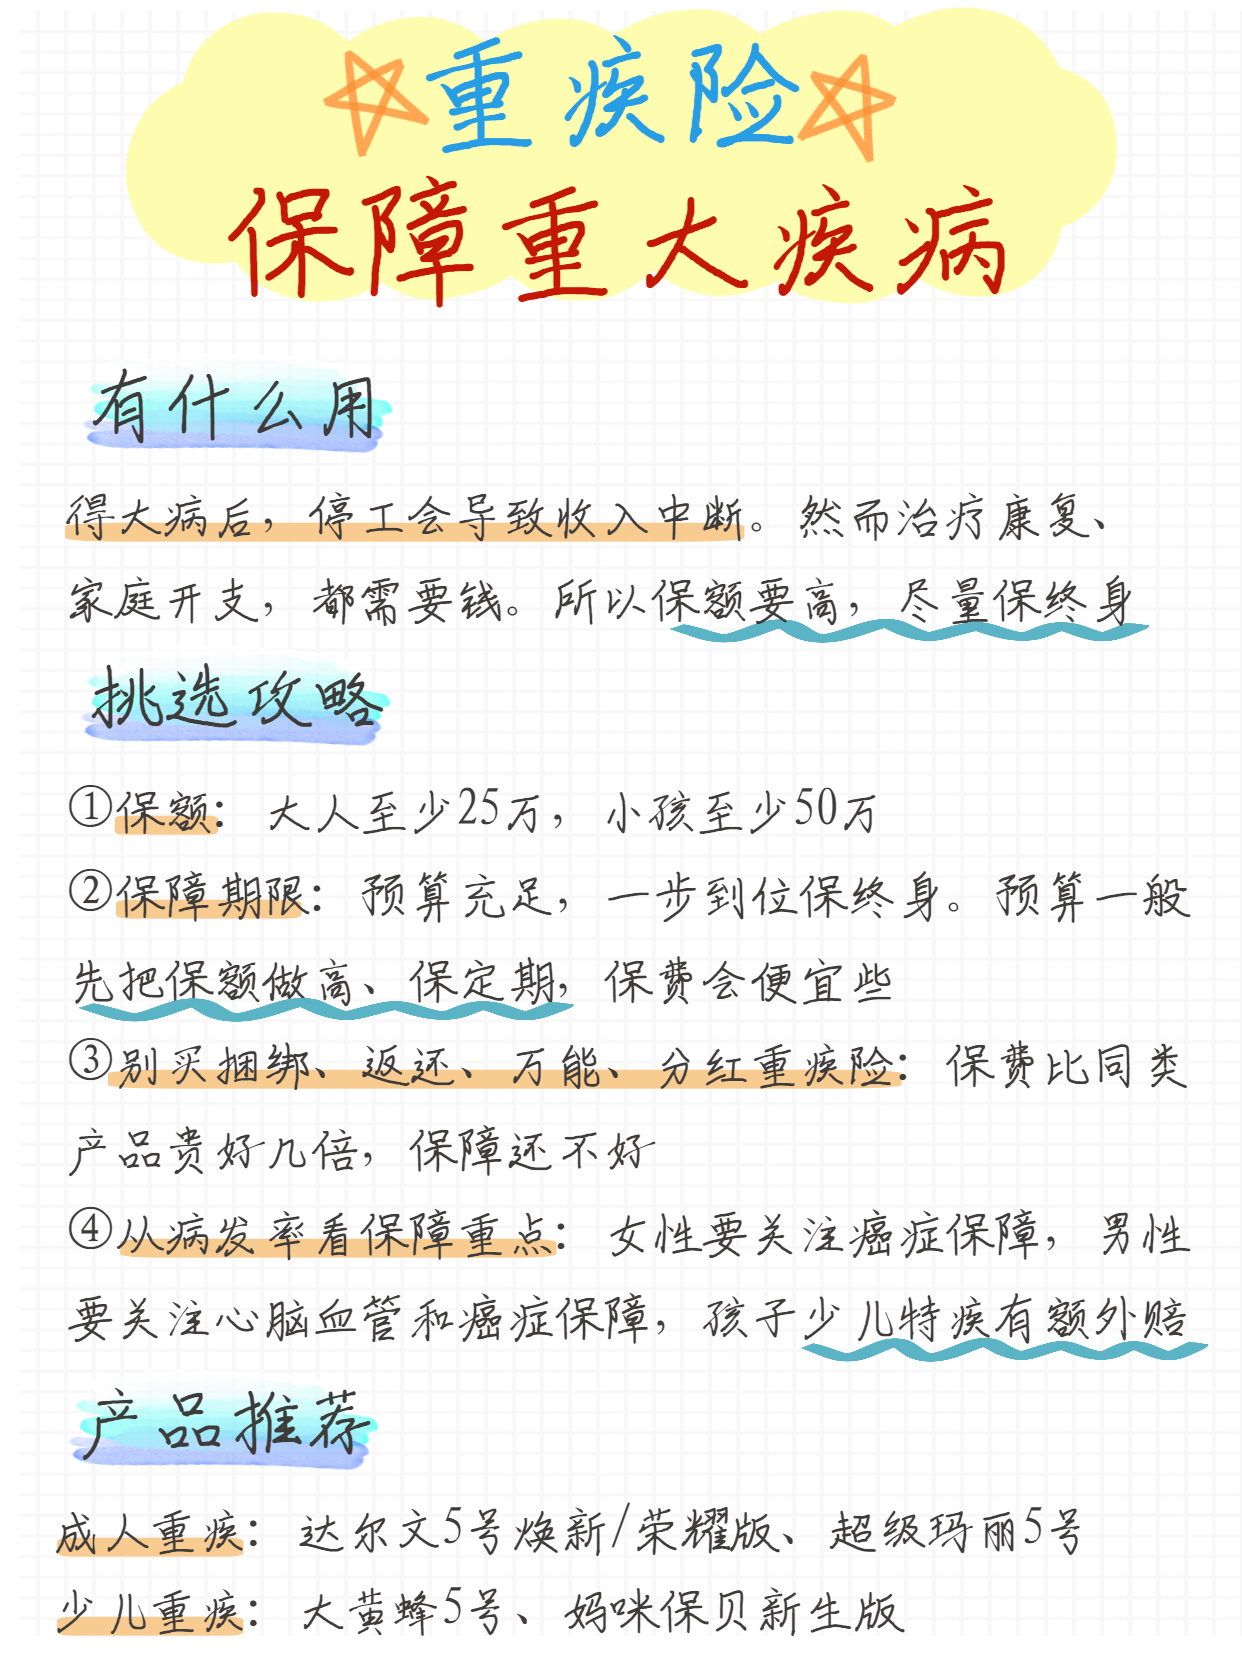 重疾险
保障重大疾病
有什么用
得大病后，停工会导致收入中断。然而治疗康复、
家庭开支，都需要钱。所以保额要高，尽量保终身
挑选攻略
①保额：大人至少25万，小孩至少50万
②保障期限：预算充足，一步到位保终身。预算一般
先把保额做高、保定期，保费会便宜些
③别买捆绑、返还、万能、分红重疾险：保费比同类
产品贵好几倍，保障还不好
④从病发率看保障重点：女性要关注癌症保障，男性
要关注心脑血管和癌症保障，孩子少儿特疾有额外赔
产品推荐
成人重疾：达尔文5号焕新/荣耀版、超级玛丽5号
少儿重疾：大黄蜂5号、妈咪保贝新生版